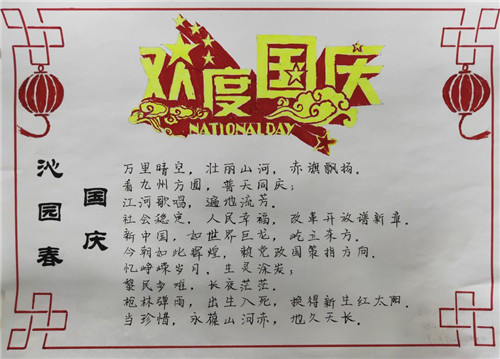 欢度国庆
NATIONAL DAY
沁园春
国庆
万里晴空，壮丽山河，赤旗飘扬。
看九州方圆，普天同庆；
江河歌唱，遍地流芳。
社会稳定，人民幸福，改革开放谱新章。
新中国，如世界巨龙，屹立东方。
今朝如此辉煌，赖党政国策指方向。
忆峥嵘岁月，生灵涂炭；
黎民多难，长夜茫茫。
枪林弹雨，出生入死，换得新生红太阳。
当珍惜，永葆山河赤，地久天长。